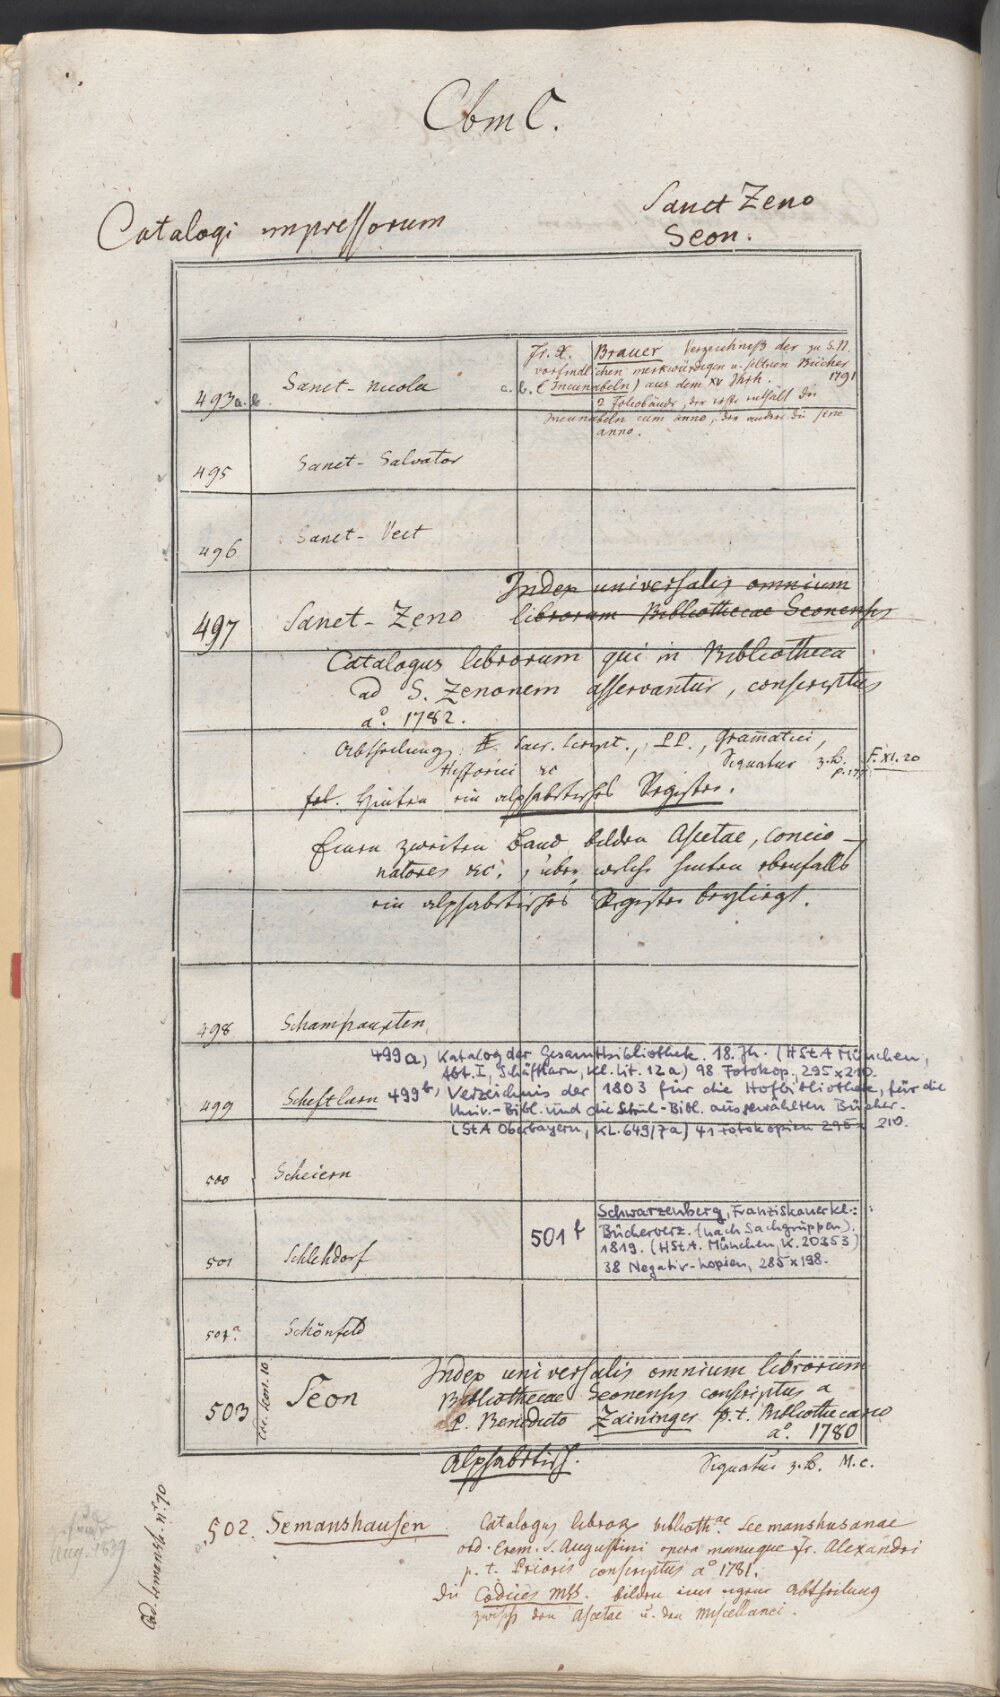 Cbm C.
Catalogi impressorum
Sanct Zeno
Seon.
493a.b Sanct-Nicola a.b.
Fr. X. Brauer Verzeichniß der zu S.N.
vorfindlichen merkwürdigen u. seltnen Bücher
(Incunabeln) aus dem XV Jhrh. 1791
2 Foliobände, der erste enthält die
Incunabeln cum anno, der andere die sine
anno.
495 Sanct-Salvator
496 Sanct-Veit
Index universalis omnium
librorum Bibliothecae Seonensis
497 Sanct-Zeno
Catalogus librorum qui in Bibliotheca
ad S. Zenonem asservantur, conscriptus
aº. 1782.
Abtheilung: Sacr. Script., PP., Gramatici,
Historici &c Signatur z.B. F. XI. 20
p. 177
fol. Hinten ein alphabetisches Register.
Einen zweiten Band bilden Ascetae, Concio-
natores &c., über welche hinten ebenfalls
ein alphabetisches Register beyliegt.
498 Schamhaupten
499a) Katalog der Gesamtbibliothek. 18. Jh. (HStA München,
Abt. I, Schäftlarn, Kl. Lit. 12a) 98 Fotokop. 295x210.
499 Scheftlarn 499b, Verzeichnis der 1803 für die Hofbibliothek, für die
Univ.-Bibl. und die Schul-Bibl. ausgewählten Bücher.
(StA Oberbayern, KL. 649/7a) 41 Fotokopien 295x 210.
500 Scheiern
501 f Schwarzenberg, Franziskanerkl.:
Bücherverz. (nach Sachgruppen).
1819. (HStA. München, K. 20353)
38 Negativ-kopien, 285x198.
501 Schlehdorf
501a. Schönfeld
503 Cod. Seon. 10 Seon
Index universalis omnium librorum
Bibliothecae Seonensis conscriptus a
P. Benedicto Zaininger p.t. Bibliothecario
aº. 1780
Alphabetisch. Signatur z.B. M.c.
502. Semanshausen
Catalogus libror. biblioth.ae Seemanshusanae
ord. Erem. S. Augustini opera manuque Fr. Alexandri
p. t. Prioris conscriptus aº 1781.
Die Codices MSS. bilden eine eigene Abtheilung
zwisch den Ascetae u. den Miscellanei.
Cod. Semansh. nº. 10
Aug. 1839